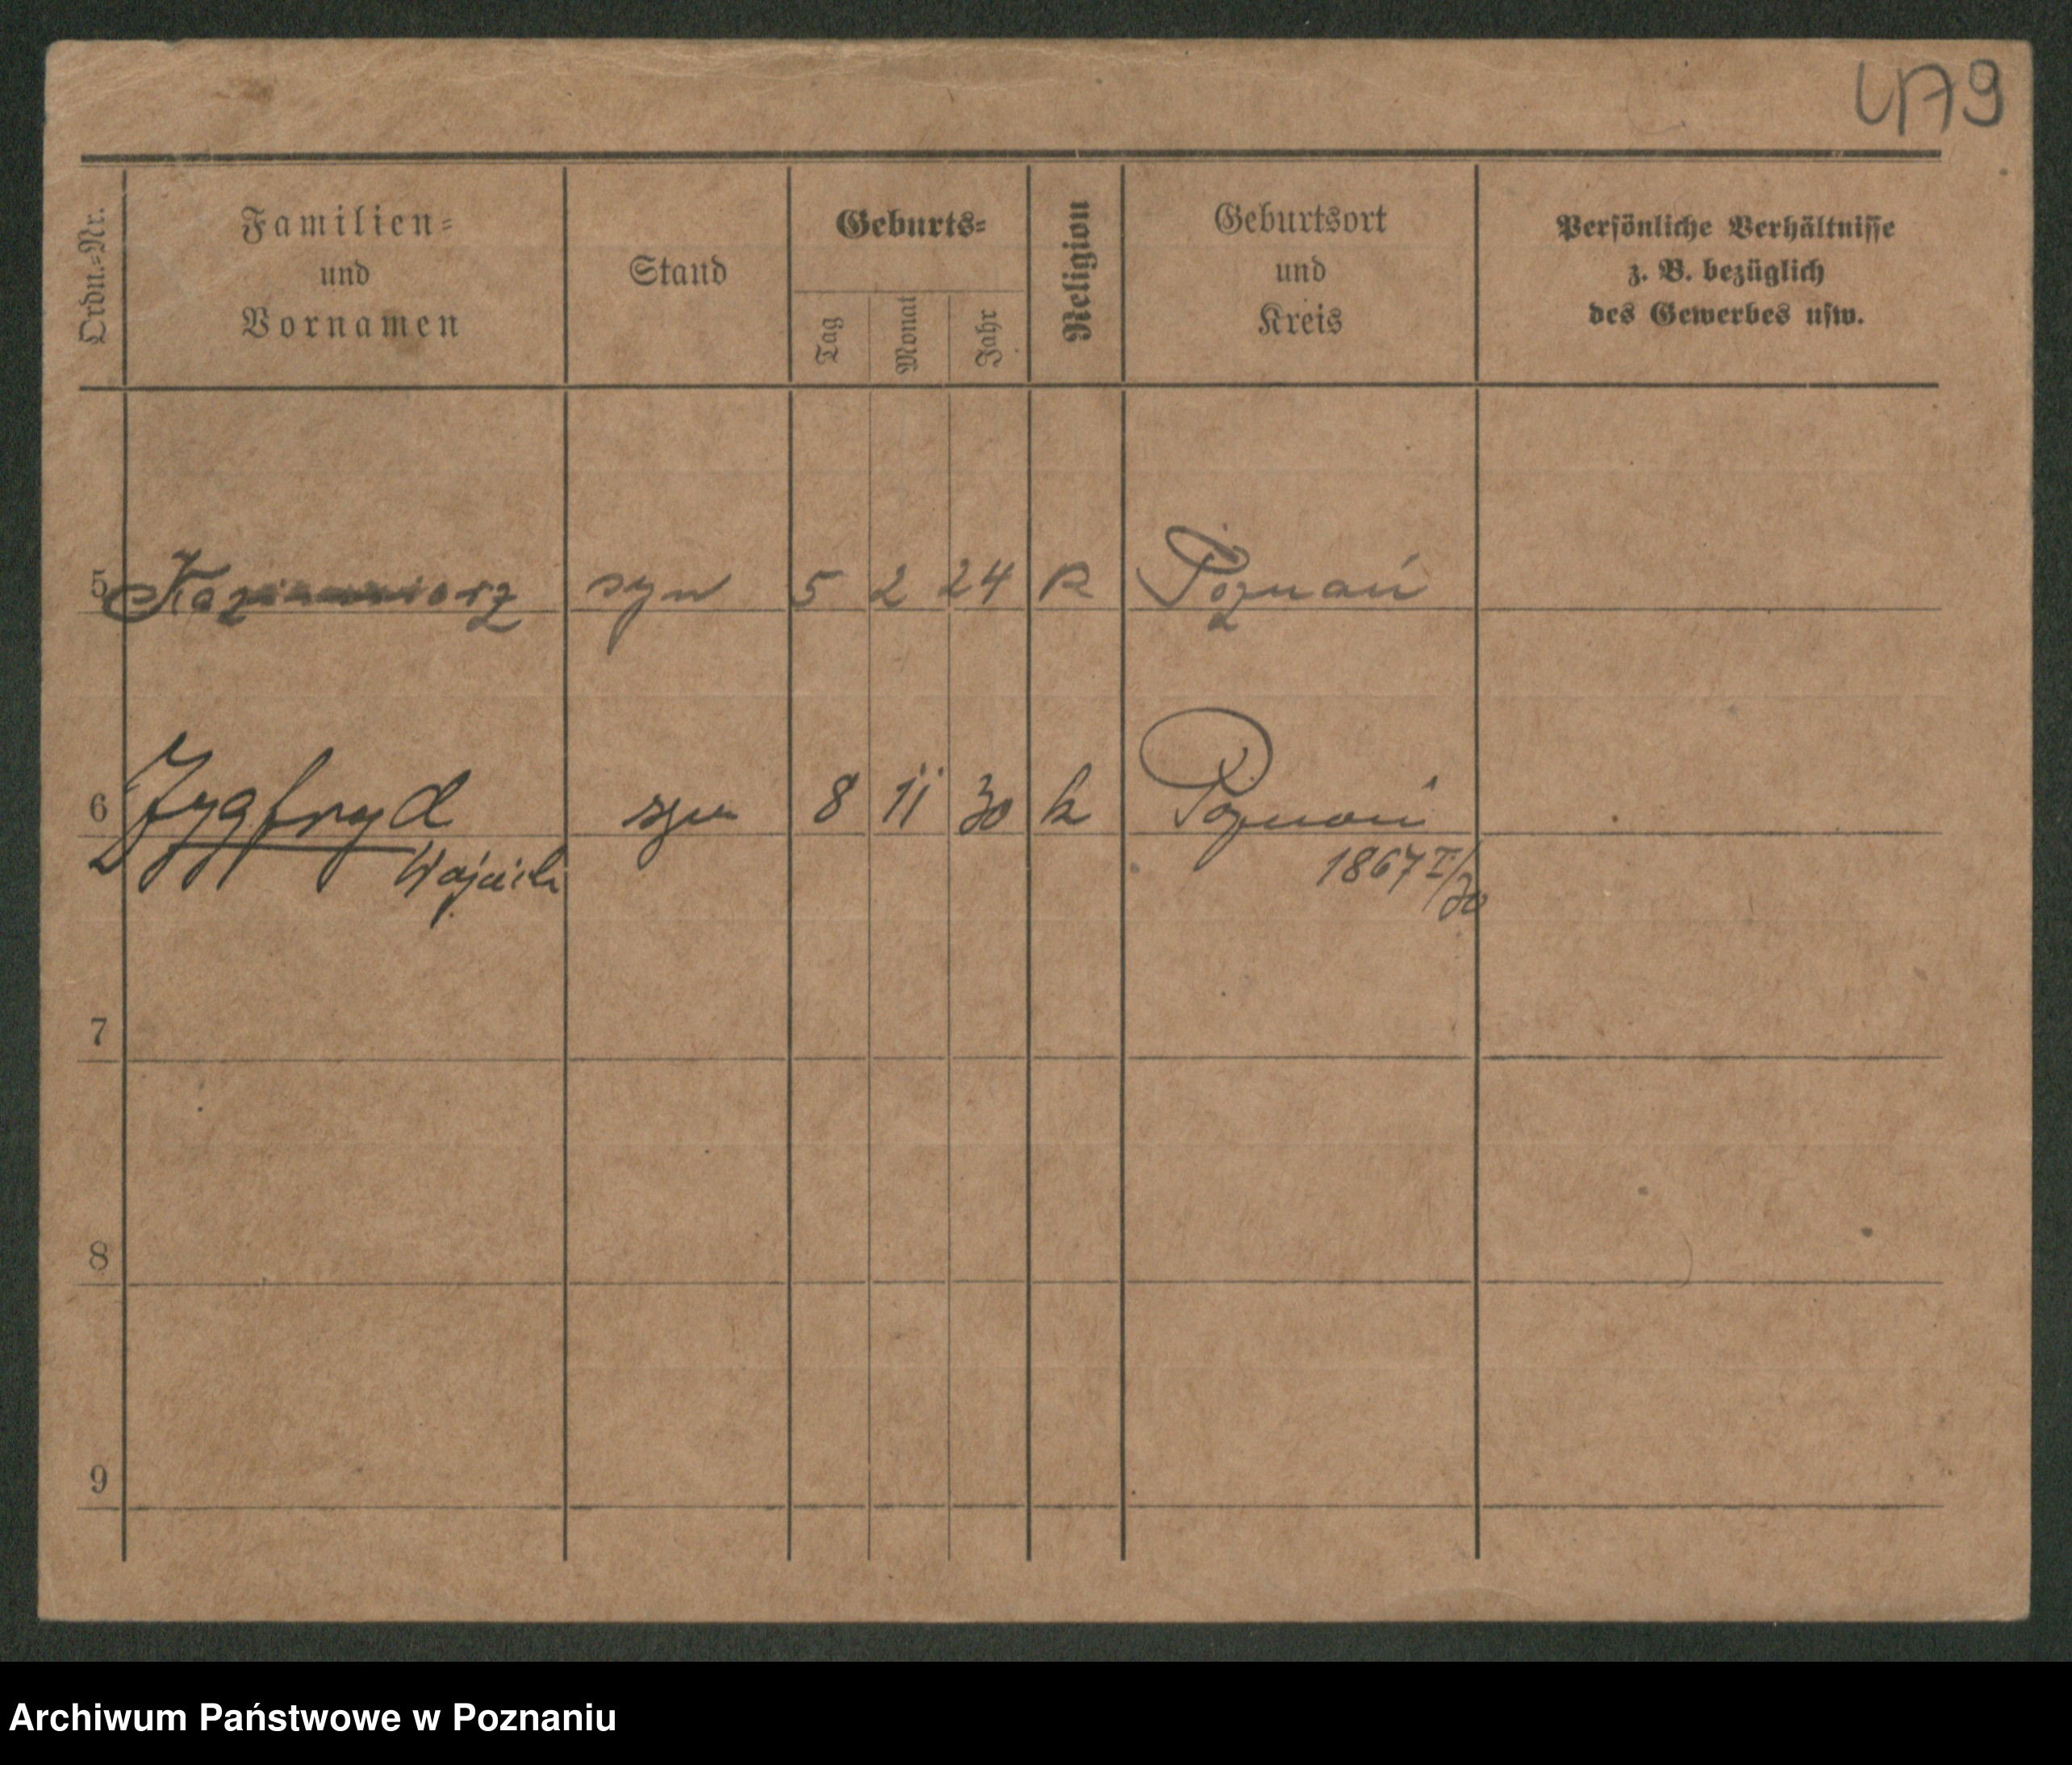 479
Ordn.-Nr.
Familien-
und
Vornamen
Stand
Geburts-
Tag
Monat
Jahr
Religion
Geburtsort
und
Kreis
Persönliche Verhältnisse
z. B. bezüglich
des Gewerbes usw.
5 Kazimierz syn 5 2 24 R Poznań
6 Zygfryd syn 8 11 30 k Poznań
Wojciech 1867 I/30
7
8
9
Archiwum Państwowe w Poznaniu